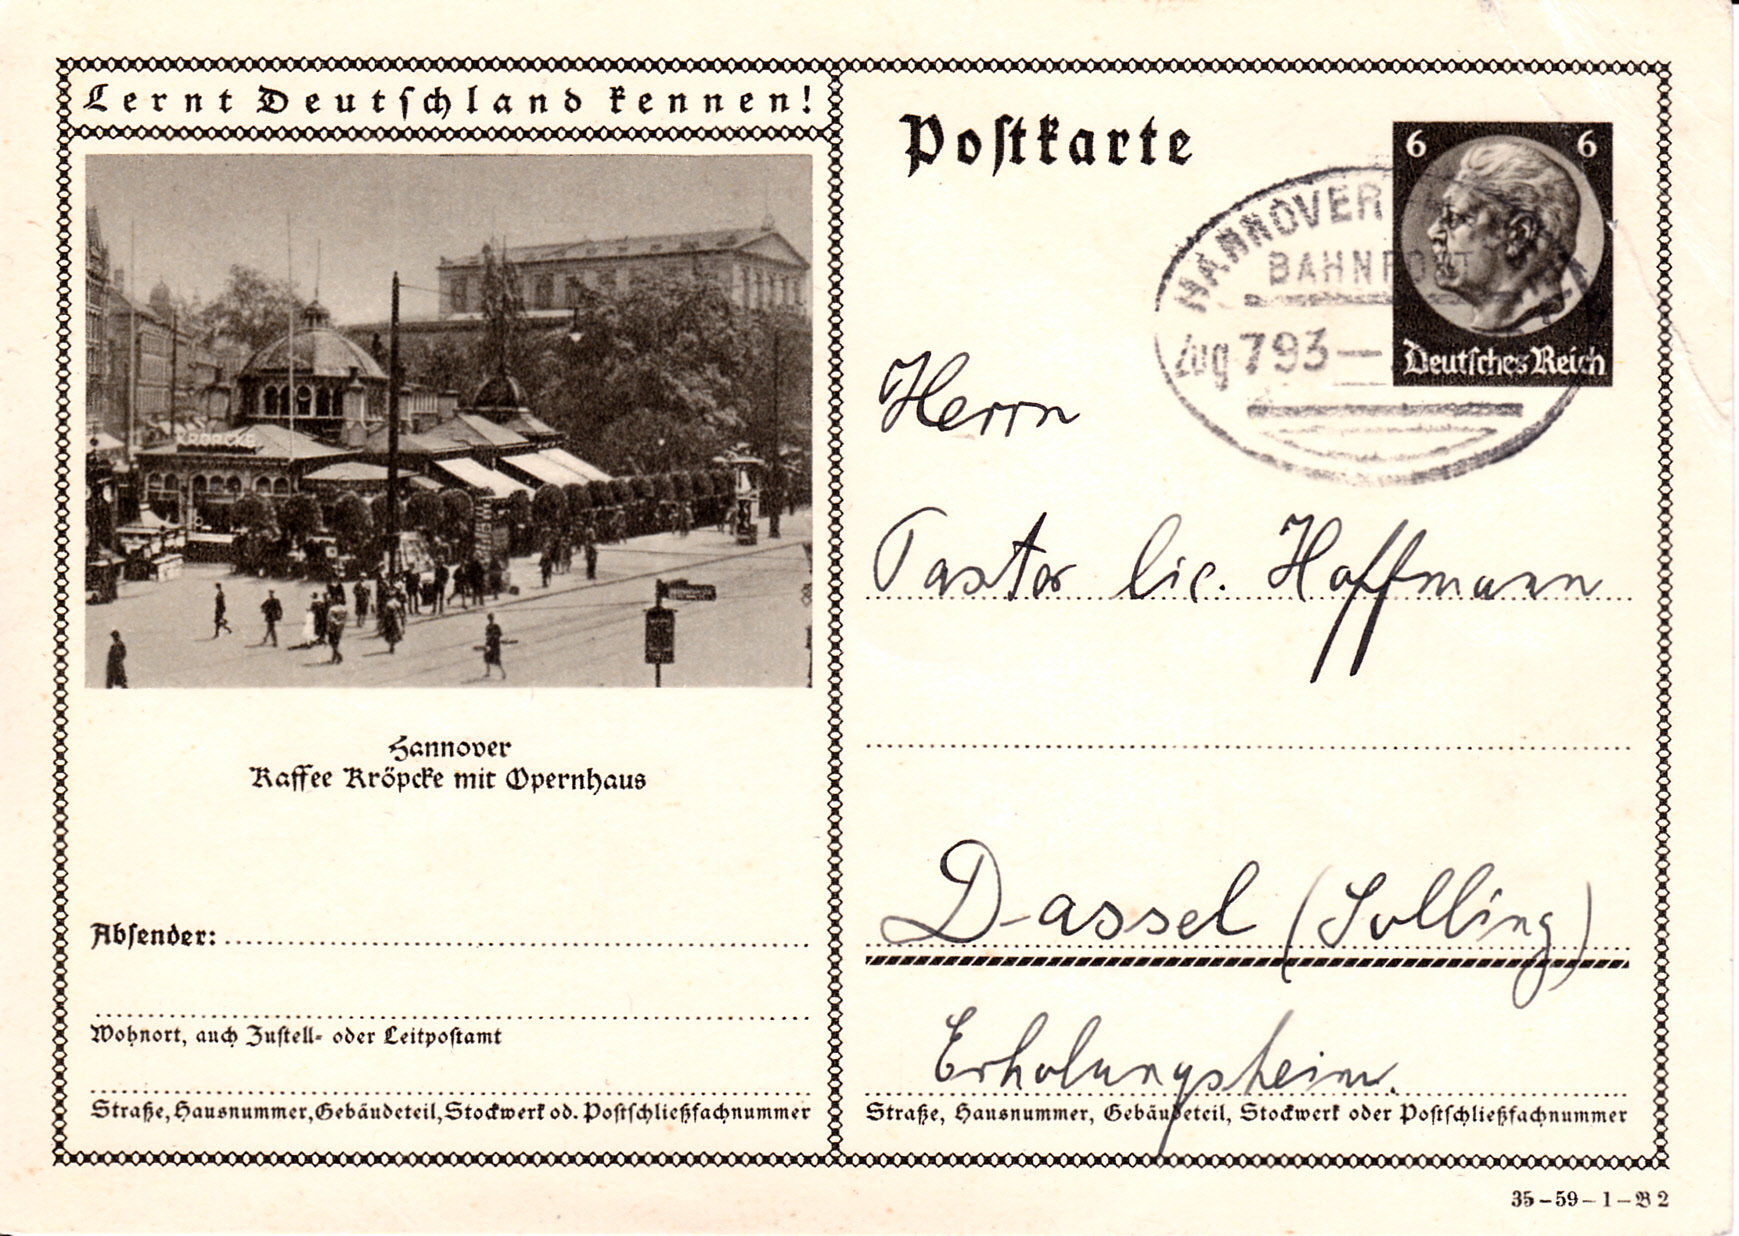 Lernt Deutschland kennen!
KRÖPCKE
Hannover
Kaffee Kröpcke mit Opernhaus
Absender:
Wohnort, auch Zustell- oder Leitpostamt
Straße, Hausnummer, Gebäudeteil, Stockwerk od. Postschließfachnummer
Postkarte
6 6
Deutsches Reich
HANNOVER
BAHNPOST
Zug 793
Herrn
Pastor lic. Hoffmann
Dassel (Solling)
Erholungsheim.
Straße, Hausnummer, Gebäudeteil, Stockwerk oder Postschließfachnummer
35-59-1-B 2